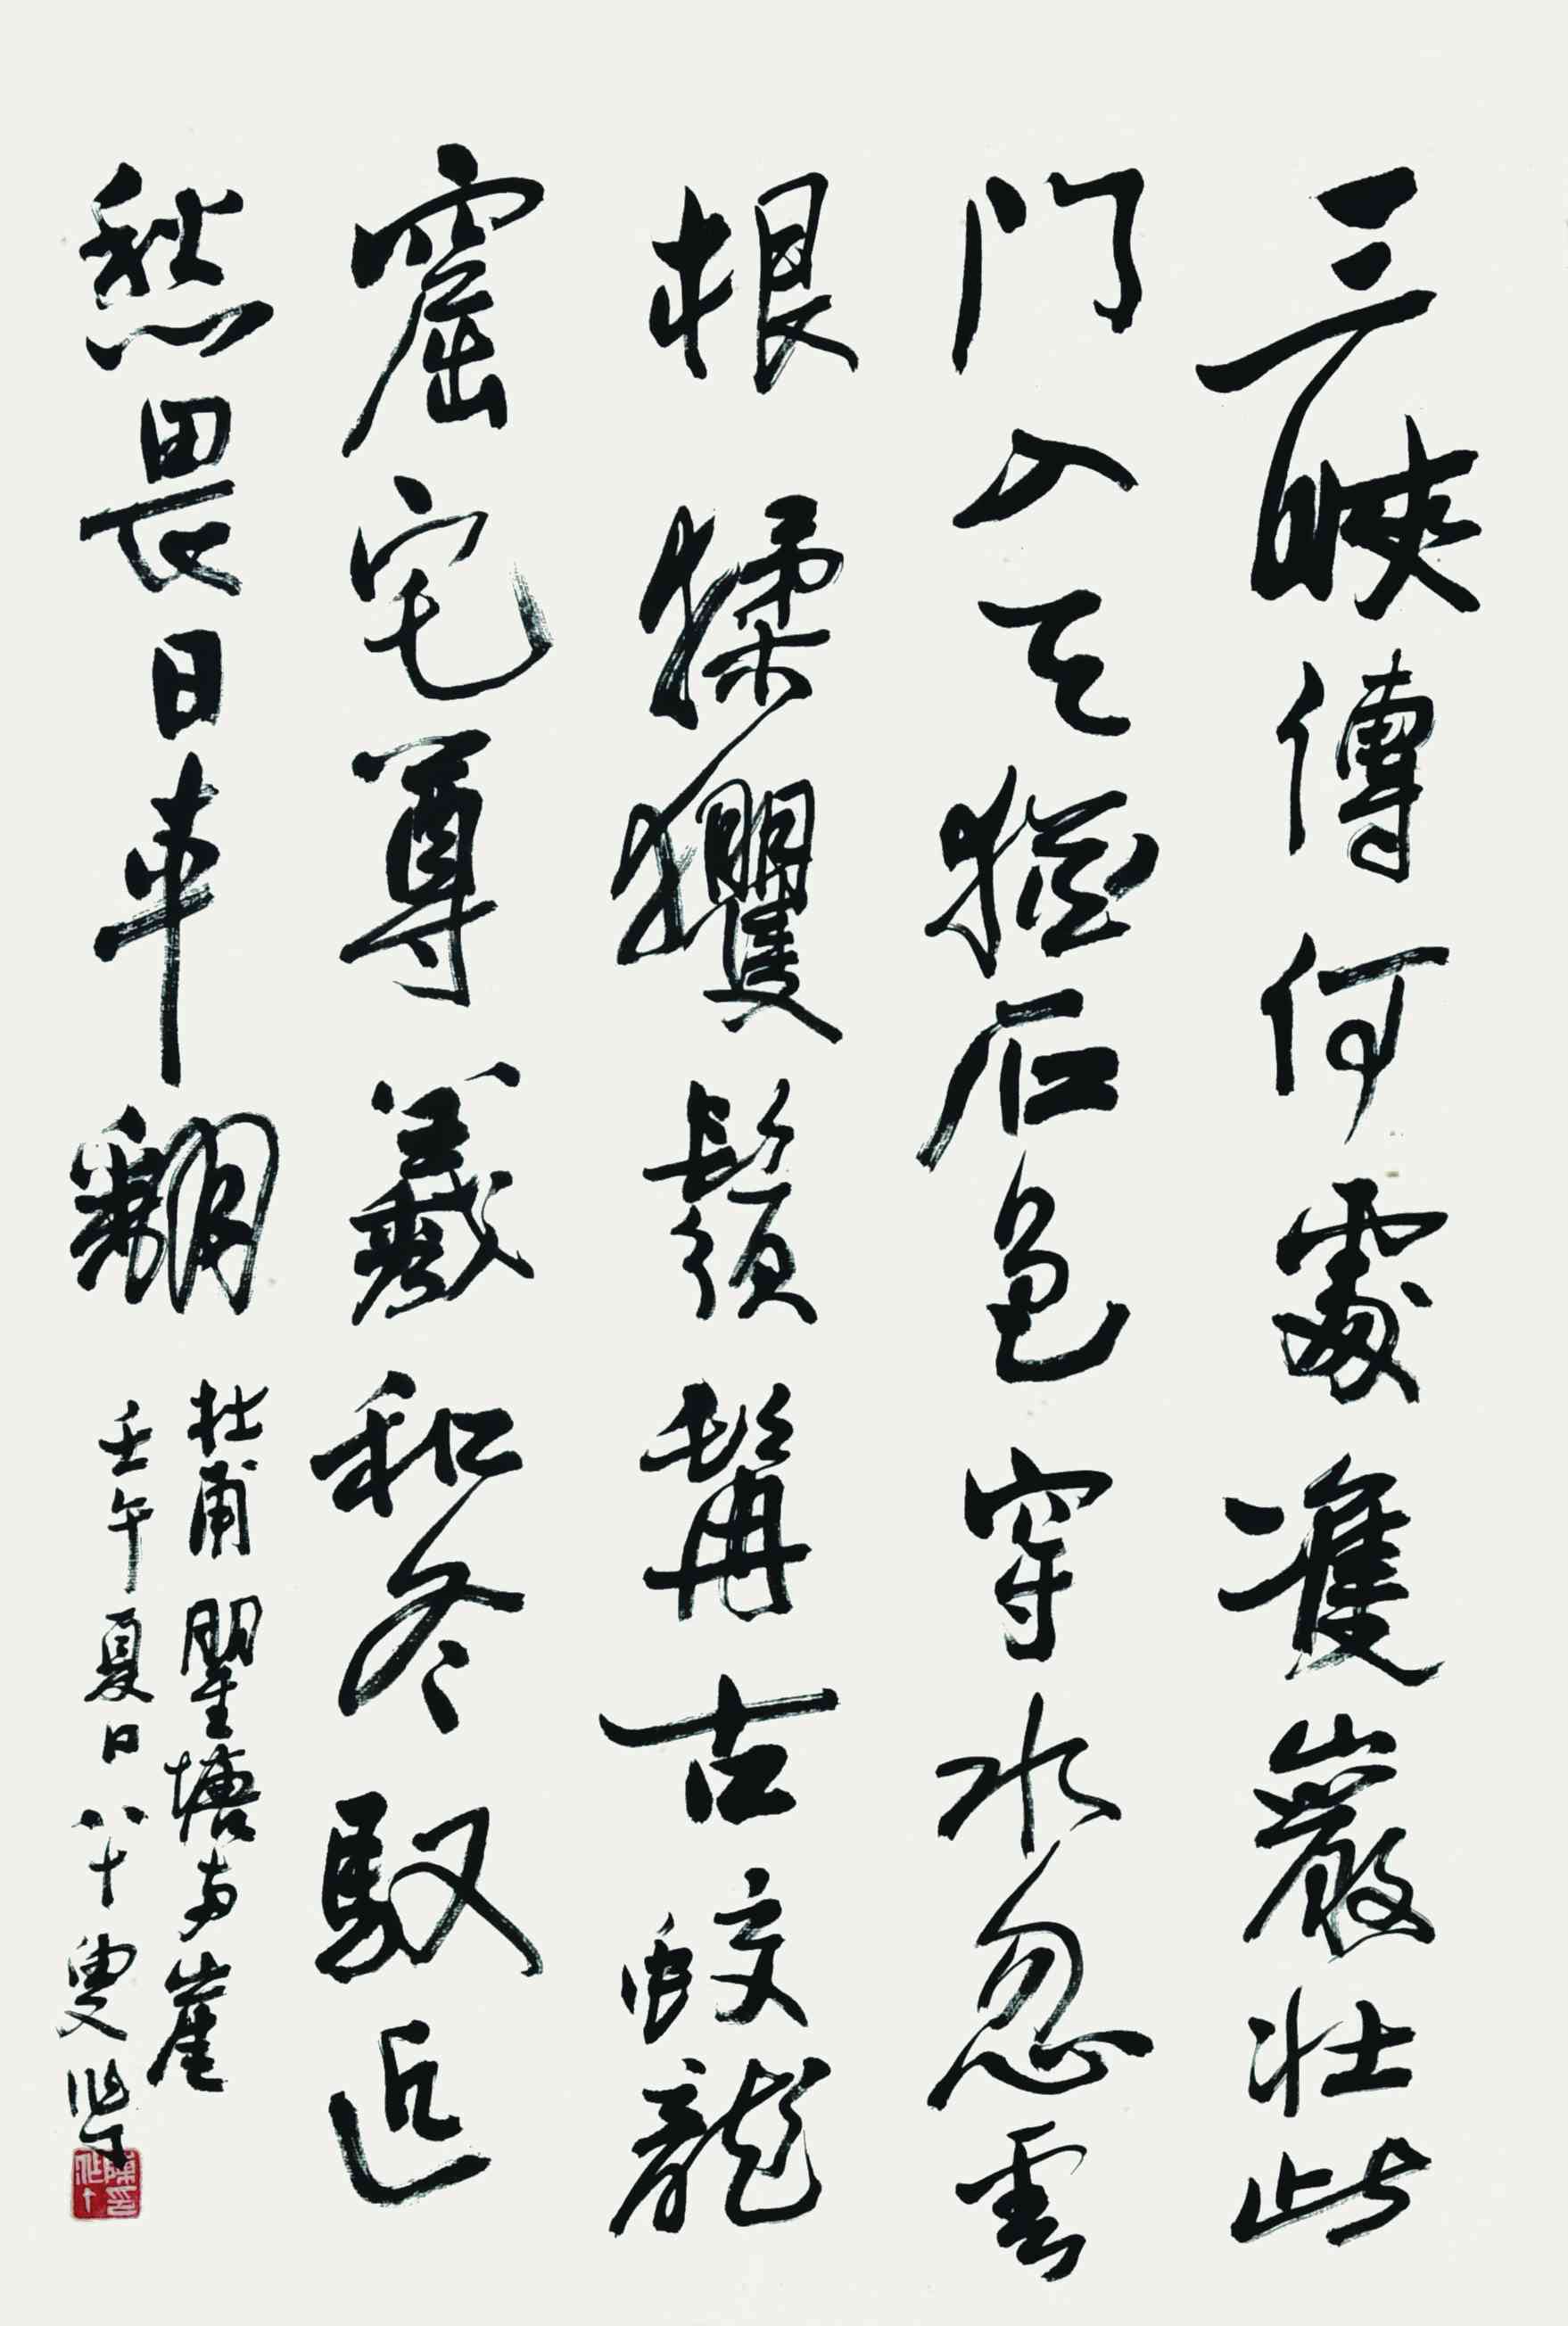 三峽傳何處雙巖壯此
門入天猶石色穿水忽雲
根猱玃鬚髯古蛟龍
窟宅尊羲和冬馭近
愁畏日車翻
杜甫瞿塘两崖
壬午夏日八十叟